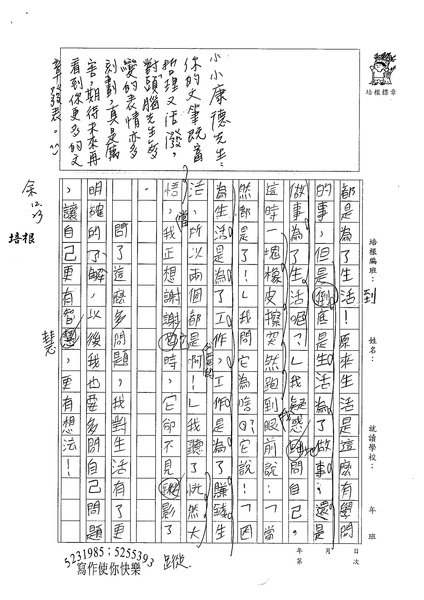 培根標章
培根編班：
姓名：
就讀學校：
年
班
年
月
日
第
次
都是為了生活！原來生活是這麼有學問
的，但是倒底是生活為了做事；還是
做事為了生活呢？」我疑惑的問自己。
這時一塊橡皮擦突然跑到眼前說！「當
然都是了！」我問它為啥？它說！「因
為生活是為了工作，工作是為了賺錢生
活，所以兩個都是啊！」我聽了恍然大
悟，我正想謝謝它時，它卻不見蹤影了
。
問了這麼多問題，我對生活有了更
明確的了解，以後我也要多問自己問題
，讓自己更有智慧，更有想法！
到
當
慧
蹤
小小康德先生：
你的文筆既富
哲理又活潑，
對頭腦先生多
變的表情亦多
刻劃，真是厲
害，期待未來再
看到你更多的文
章發表。
余12.23
培根
5231985；5255393
寫作使你快樂